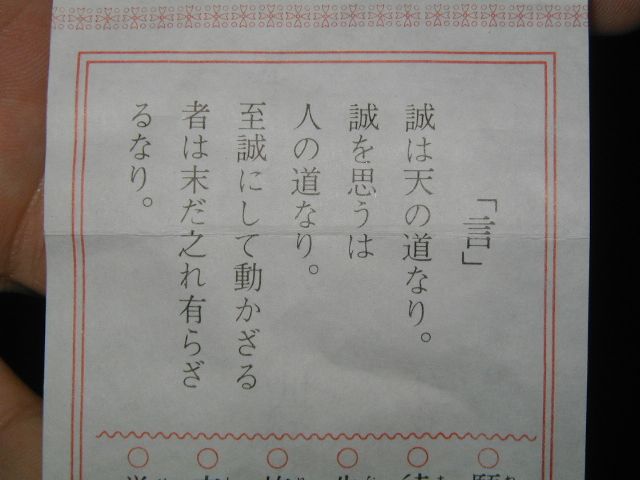 「言」
誠は天の道なり。
誠を思うは
人の道なり。
至誠にして動かざる
者は末だ之れ有らざ
るなり。